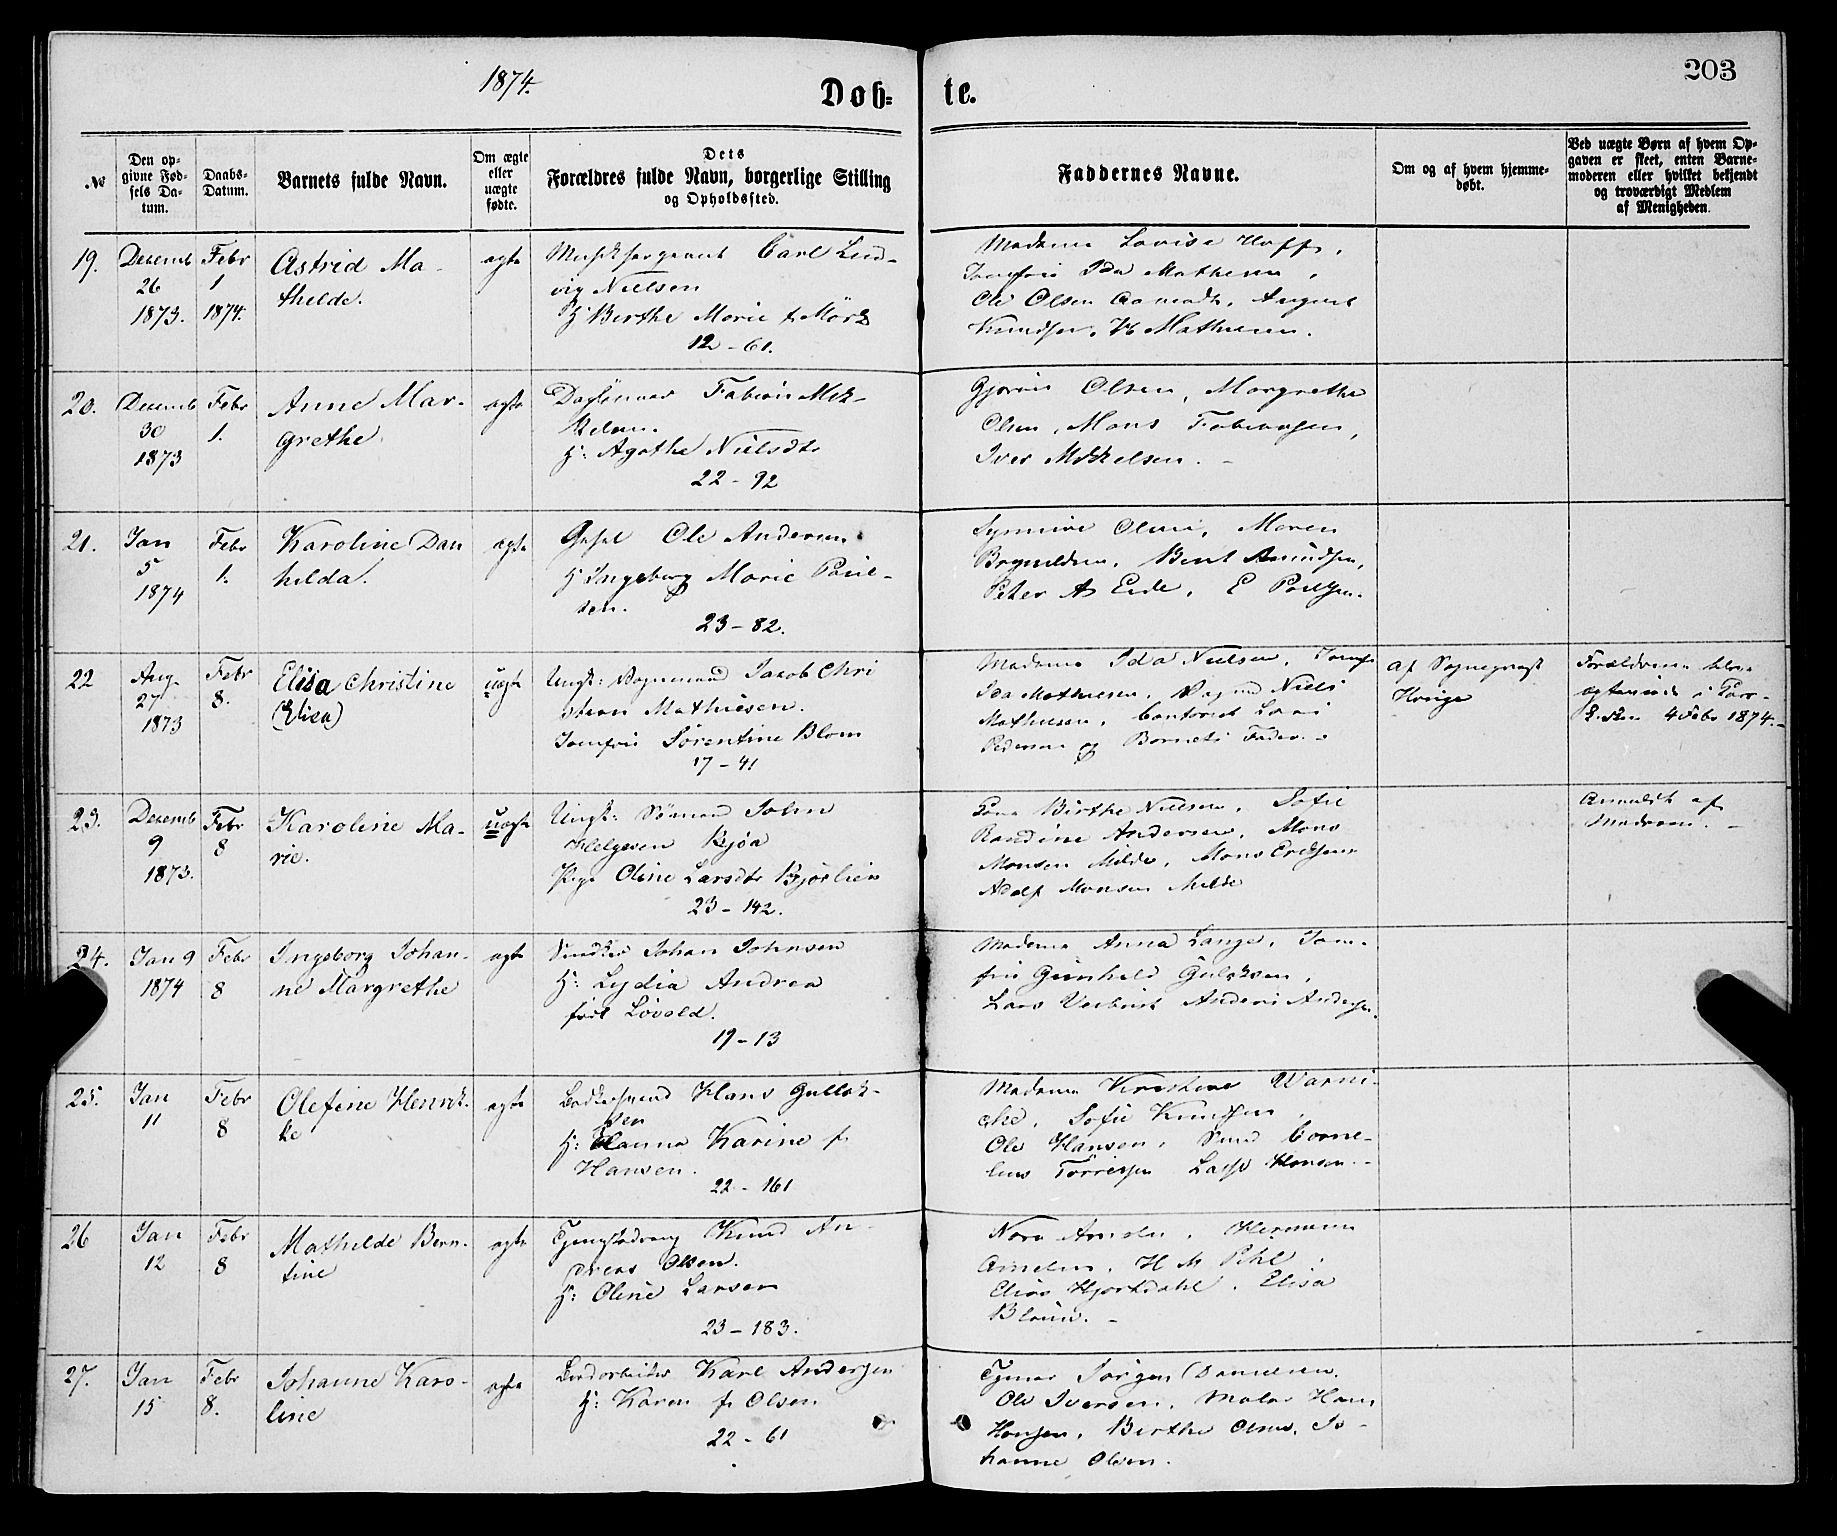 1874.
Døb=
te.
203
№
Den op-
givne Fød-
sels Da-
tum.
Daabs-
Datum.
Barnets fulde Navn.
Om ægte
eller
uægte
fødte.
Dets
Forældres fulde Navn, borgerlige Stilling
og Opholdssted.
Faddernes Navne.
Om og af hvem hjemme-
døbt.
Ved uægte Børn af hvem Op-
gaven er skeet, enten Barne-
moderen eller hvilket bekjendt
og troværdigt Medlem
af Menigheden.
19.
Decemb
26
1873.
Febr
1
1874.
Astrid Ma-
thilde.
ægte
Carl Lud-
vig Nielsen
H: Birthe Marie f. Mörk
12 - 61.
Madame Lovise Hoff,
Jomfru Ida Mathiesen,
Ole Olsen August
Knudsen, H Mathiesen.
20.
Decemb
30
1873
Febr
1.
Anne Mar-
grethe
ægte
Fabian Mik-
kelsen.
H: Agathe Nielsdtr
22 - 92
Olsen, Margrethe
Olsen, Mons Fabiansen,
Iver Mikkelsen. -
21.
Jan
5
1874
Febr
1.
Karoline Dan
hilda.
ægte
Ole Andersen
H Ingeborg Marie Poul-
sen.
23 - 82.
Maren
Bryneldsen, Bent Amundsen,
Peter A Eide, E Poulsen.
22
Aug.
27
1873
Febr
8.
Elisa Christine
(Elisa)
uægte
Ungk: Jacob Chri
stian Mathiesen.
Jomfru Sørentine Blom
17 - 41
Madame Ida Nielsen, Jomfr
Ida Mathiesen, Niels
Mathiesen,
Pedersen og Barnets Fader. -
af Sogneprest
Hvinge
Forældrene bleve
ægteviede i Kors-
kirken 4 Febr 1874. -
23.
Decemb
9
1873.
Febr
8
Karoline Ma-
rie.
uægte
Ungk: Sömand John
Helgesen Bjøa
Pige Oline Larsdtr Bjørlien
23 - 142.
Kone Birthe Nielsen, Sofie
Randine Andersen, Mons
Monsen Milde, Mons Ericksen
Adolf Monsen Milde
Anmeldt af
Moderen. -
24.
Jan 9
1874
Febr
8
Ingeborg Johan-
ne Margrethe
ægte
Snedker Johan Johnsen
H: Lydia Andrea
født Lövold.
19 - 13
Madame Anna Lange, Jom-
fru Gunhild Gulaksen,
Lars Anders Andersen.
25.
Jan
11
Febr
8
Olefine Henrik-
ke
ægte
Bødkersvend Hans Gullak-
sen
H: Hanna Karine f.
Hansen.
22 - 161
Madame Kristine Warni-
cke, Sofie Knudsen,
Ole Hansen, Svend Corne-
lius Torrisen Lasse Hansen. -
26
Jan
12
Febr
8
Mathilde Bern-
tine
ægte
Knud An-
dreas Olsen.
H: Oline Larsen
23 - 183.
Nora Ameln, Hermann
Ameln, H M Pihl,
Elias Hjortdahl, Elisa
Blaun. -
27.
Jan
15
Febr
8.
Johanne Karo-
line
ægte
Karl Andersen
H: Karen f. Olsen
22 - 61
Jørgen Danielsen,
Ole Iversen, Maler Hans
Hansen, Birthe Olsen, Jo-
hanne Olsen.